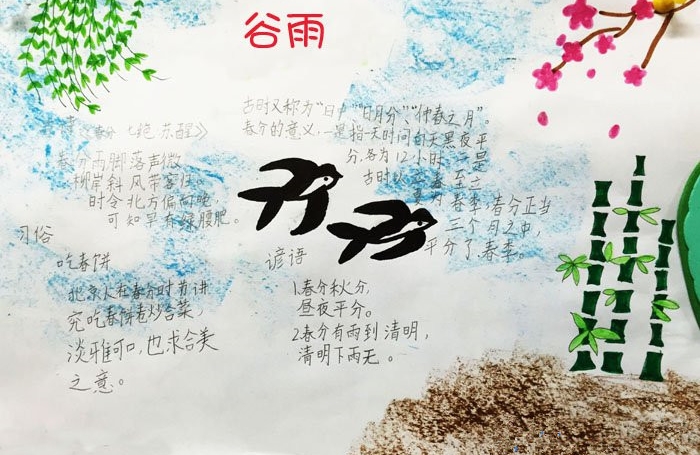 谷雨
诗《春分 七绝 苏醒》
春分雨脚落声微,
柳岸斜风带客归。
时令北方偏向晚,
可知早有绿腰肥。
古时又称为“日中”“日月分”、“仲春之月”。
春分的意义,一是指一天时间白天黑夜平
分,各为12小时,二是
古时以立春至立
夏为春季,春分正当
三个月之中,
平分了春季。
习俗
吃春饼
北京人在春分时节讲
究吃春饼卷炒合菜,
淡雅可口,也求合美
之意。
谚语
1.春分秋分,
昼夜平分。
2春分有雨到清明,
清明下雨无。